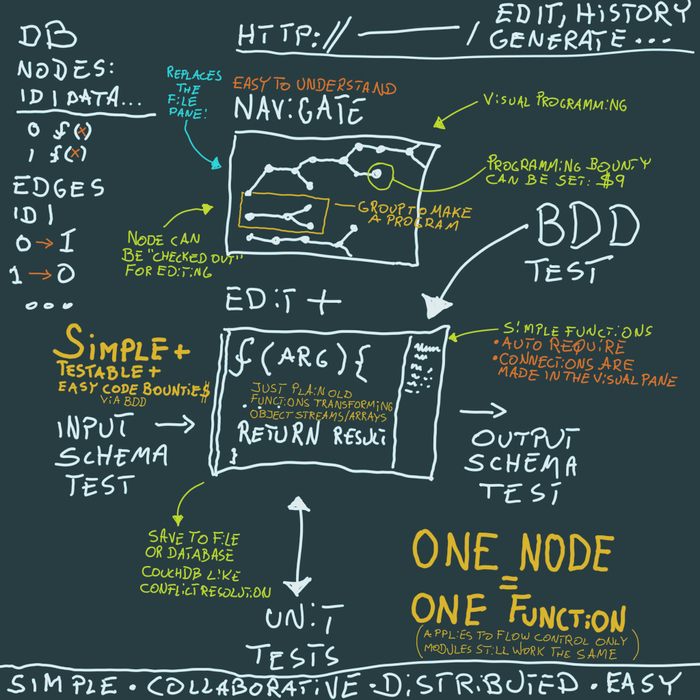 DB
NODES:
ID | DATA...
0 f(x)
1 f(x)
EDGES
ID |
0 → 1
1 → 0
...
HTTP:// ——— /
EDIT, HISTORY
GENERATE...
REPLACES
THE
FILE
PANE!
EASY TO UNDERSTAND
NAVIGATE
VISUAL PROGRAMMING
PROGRAMMING BOUNTY
CAN BE SET: $9
GROUP TO MAKE
A PROGRAM
NODE CAN
BE "CHECKED OUT"
FOR EDITING
BDD
TEST
EDIT +
SIMPLE +
TESTABLE +
EASY CODE BOUNTIE$
VIA BDD
INPUT
SCHEMA
TEST
f(ARG){
JUST PLAIN OLD
FUNCTIONS TRANSFORMING
OBJECT STREAMS/ARRAYS
RETURN RESULT
}
SIMPLE FUNCTIONS
• AUTO REQUIRE
• CONNECTIONS ARE
MADE IN THE VISUAL PANE
OUTPUT
SCHEMA
TEST
SAVE TO FILE
OR DATABASE
COUCHDB LIKE
CONFLICT RESOLUTION
UNIT
TESTS
ONE NODE
=
ONE FUNCTION
(APPLIES TO FLOW CONTROL ONLY
MODULES STILL WORK THE SAME)
SIMPLE • COLLABORATIVE • DISTRIBUTED • EASY